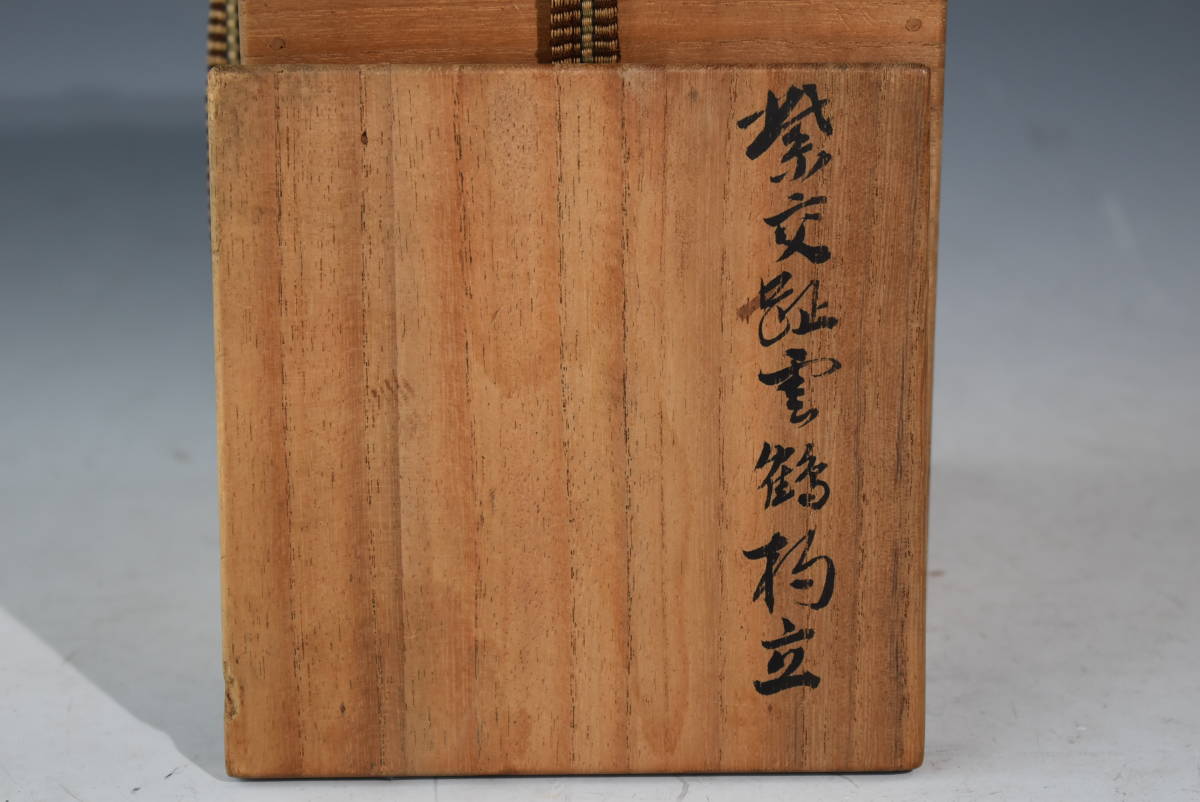 紫交趾雲鶴杓立